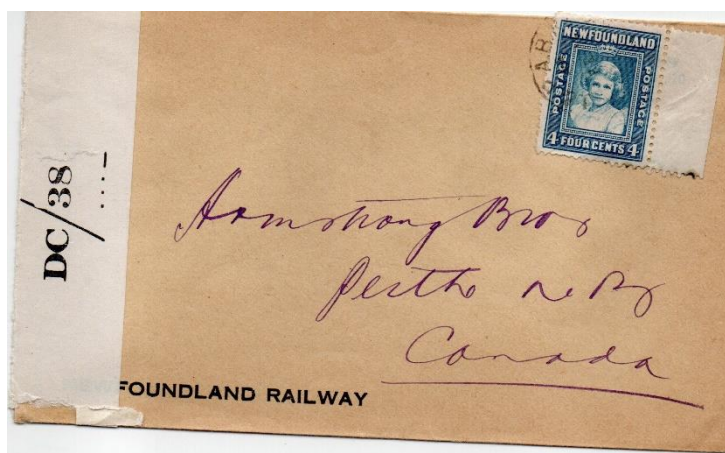 NEWFOUNDLAND
POSTAGE
POSTAGE
4 FOUR CENTS 4
DC/38
Armstrong Bros
Perth N B
Canada
FOUNDLAND RAILWAY